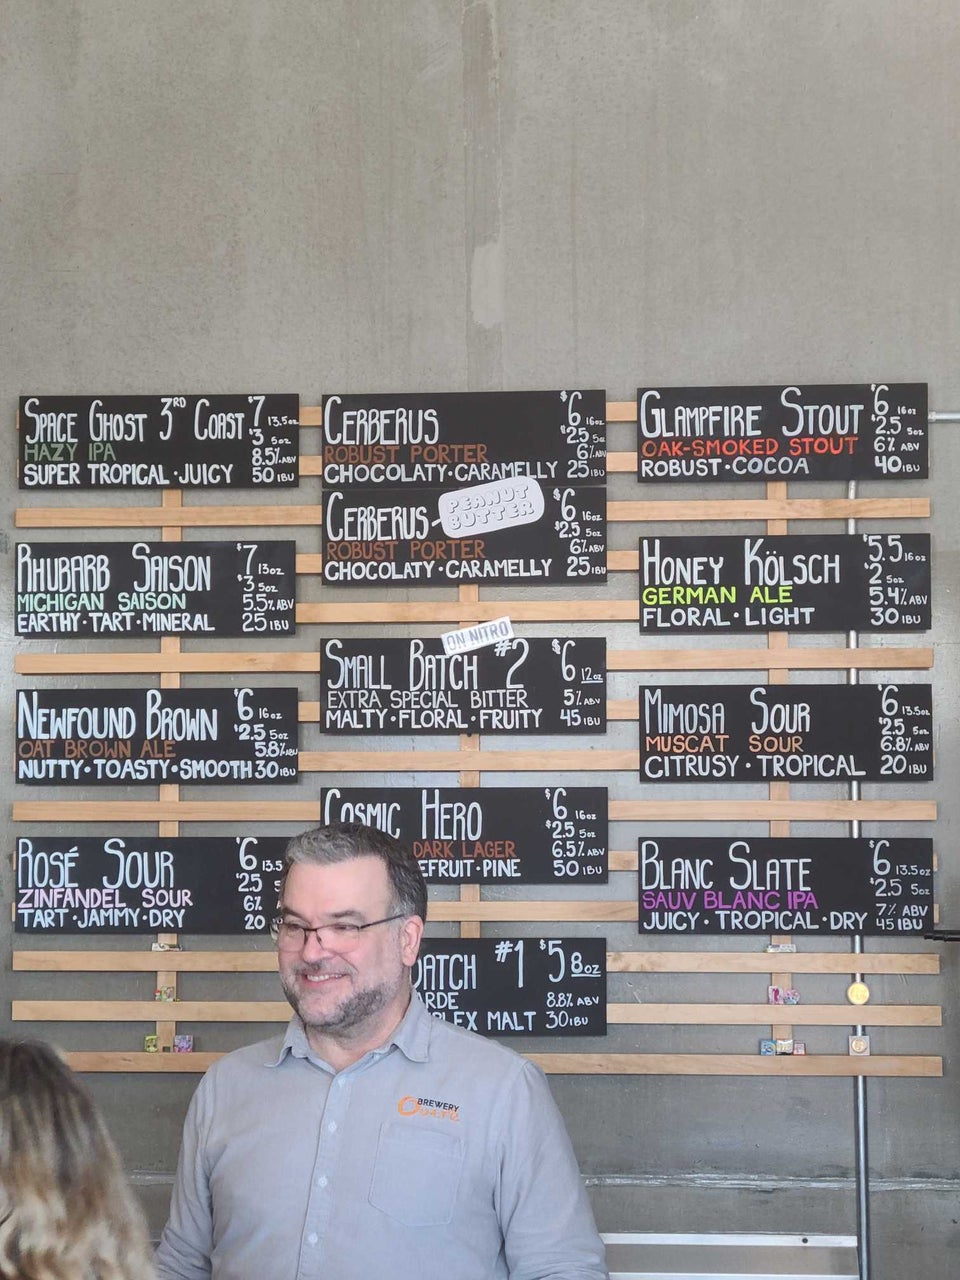 SPACE GHOST 3RD COAST $7 13.5oz
HAZY IPA $3 5oz
8.5% ABV
SUPER TROPICAL·JUICY 50 IBU
RHUBARB SAISON $7 13oz
MICHIGAN SAISON $3 5oz
5.5% ABV
EARTHY·TART·MINERAL 25 IBU
NEWFOUND BROWN $6 16oz
$2.5 5oz
OAT BROWN ALE 5.8% ABV
NUTTY·TOASTY·SMOOTH 30 IBU
ROSÉ SOUR $6 13.5
$2.5
ZINFANDEL SOUR 6%
TART·JAMMY·DRY 20
CERBERUS $6 16oz
$2.5 5oz
ROBUST PORTER 6% ABV
CHOCOLATY·CARAMELLY 25 IBU
CERBERUS PEANUT BUTTER $6 16oz
$2.5 5oz
ROBUST PORTER 6% ABV
CHOCOLATY·CARAMELLY 25 IBU
ON NITRO
SMALL BATCH #2 $6 12oz
EXTRA SPECIAL BITTER 5% ABV
MALTY·FLORAL·FRUITY 45 IBU
COSMIC HERO $6 16oz
$2.5 5oz
DARK LAGER 6.5% ABV
EFRUIT·PINE 50 IBU
BATCH #1 $5 8oz
ARDE 8.8% ABV
PLEX MALT 30 IBU
GLAMPFIRE STOUT $6 16oz
$2.5 5oz
OAK-SMOKED STOUT 6% ABV
ROBUST·COCOA 40 IBU
HONEY KÖLSCH $5.5 16oz
$2 5oz
GERMAN ALE 5.4% ABV
FLORAL·LIGHT 30 IBU
MIMOSA SOUR $6 13.5oz
$2.5 5oz
MUSCAT SOUR 6.8% ABV
CITRUSY·TROPICAL 20 IBU
BLANC SLATE $6 13.5oz
$2.5 5oz
SAUV BLANC IPA 7% ABV
JUICY·TROPICAL·DRY 45 IBU
BREWERY